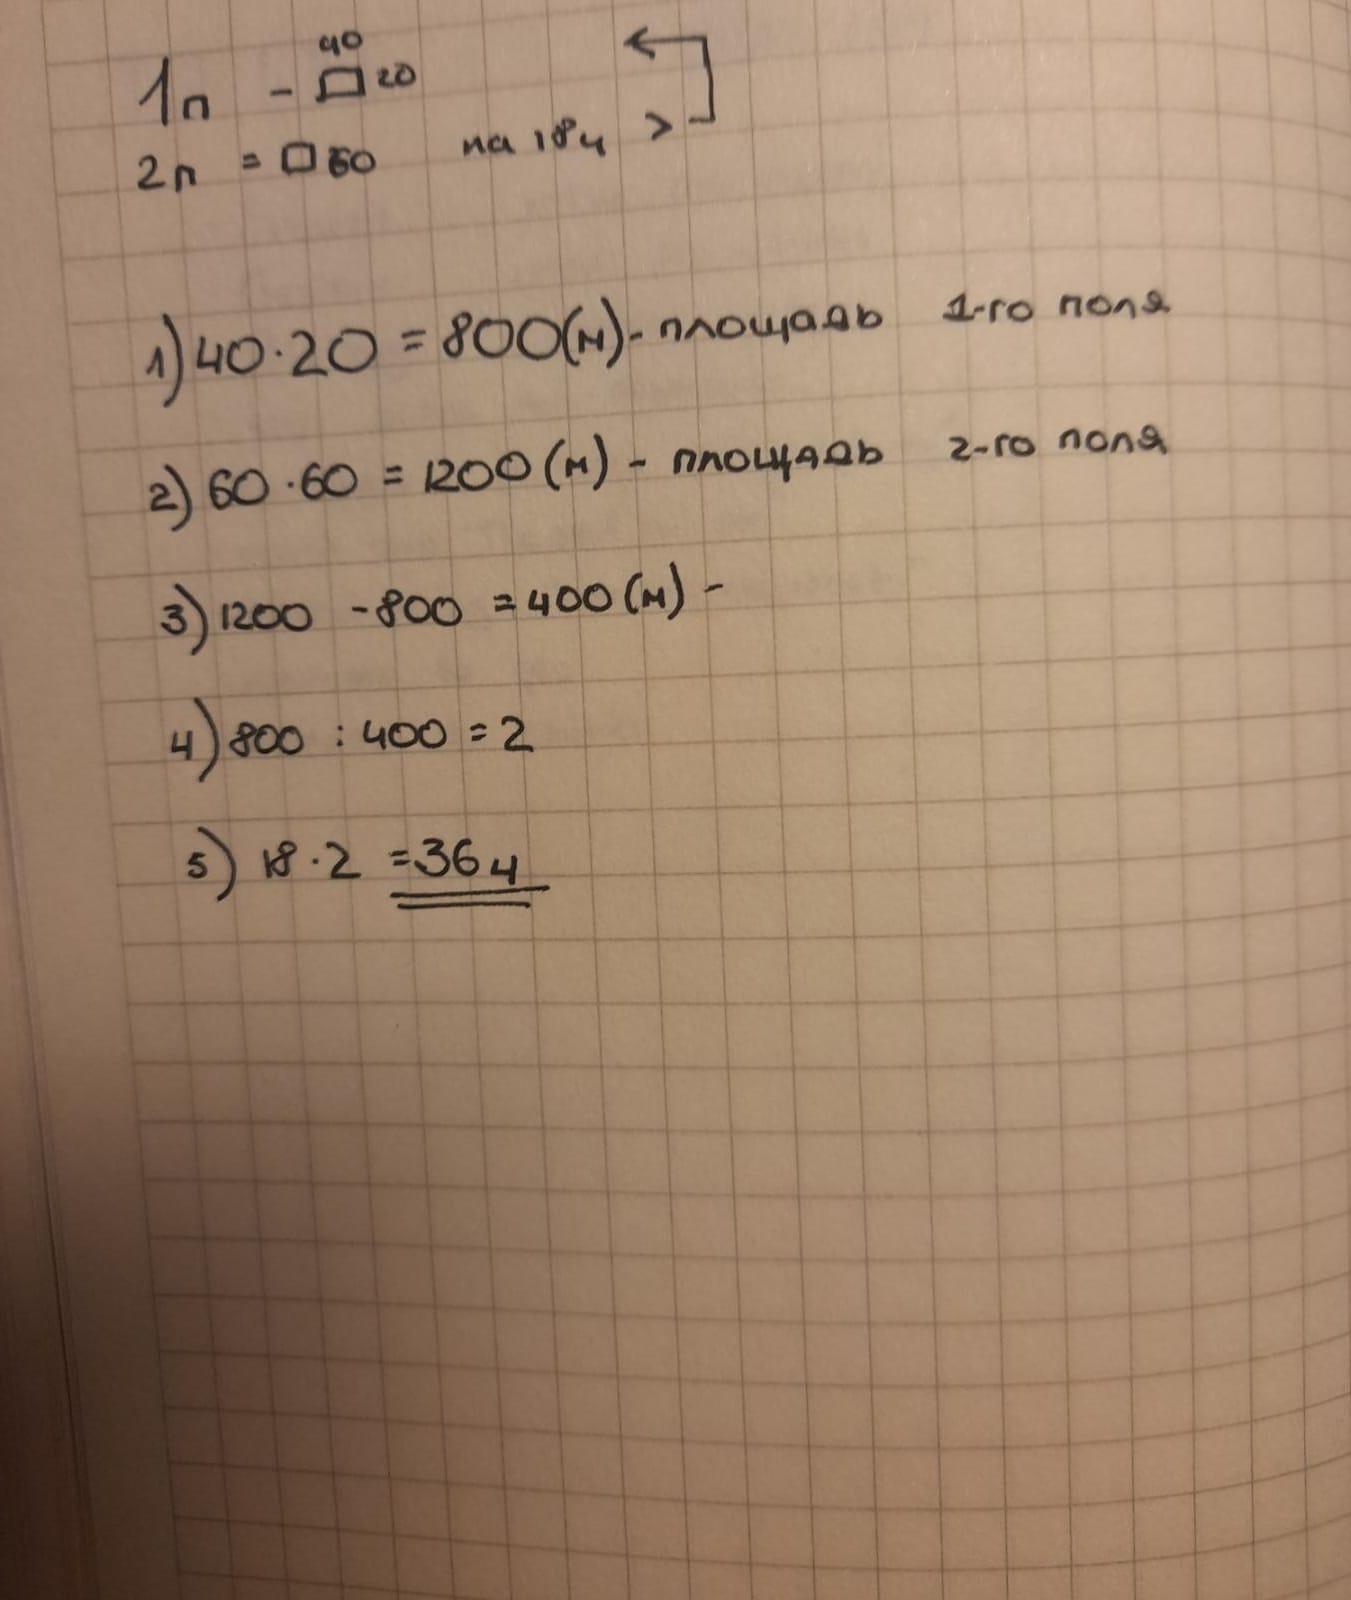 40
1п - 20
2п = 60 на 18ч >
1) 40 · 20 = 800 (м) - площадь 1-го поля
2) 60 · 60 = 1200 (м) - площадь 2-го поля
3) 1200 - 800 = 400 (м) -
4) 800 : 400 = 2
5) 18 · 2 = 36ч